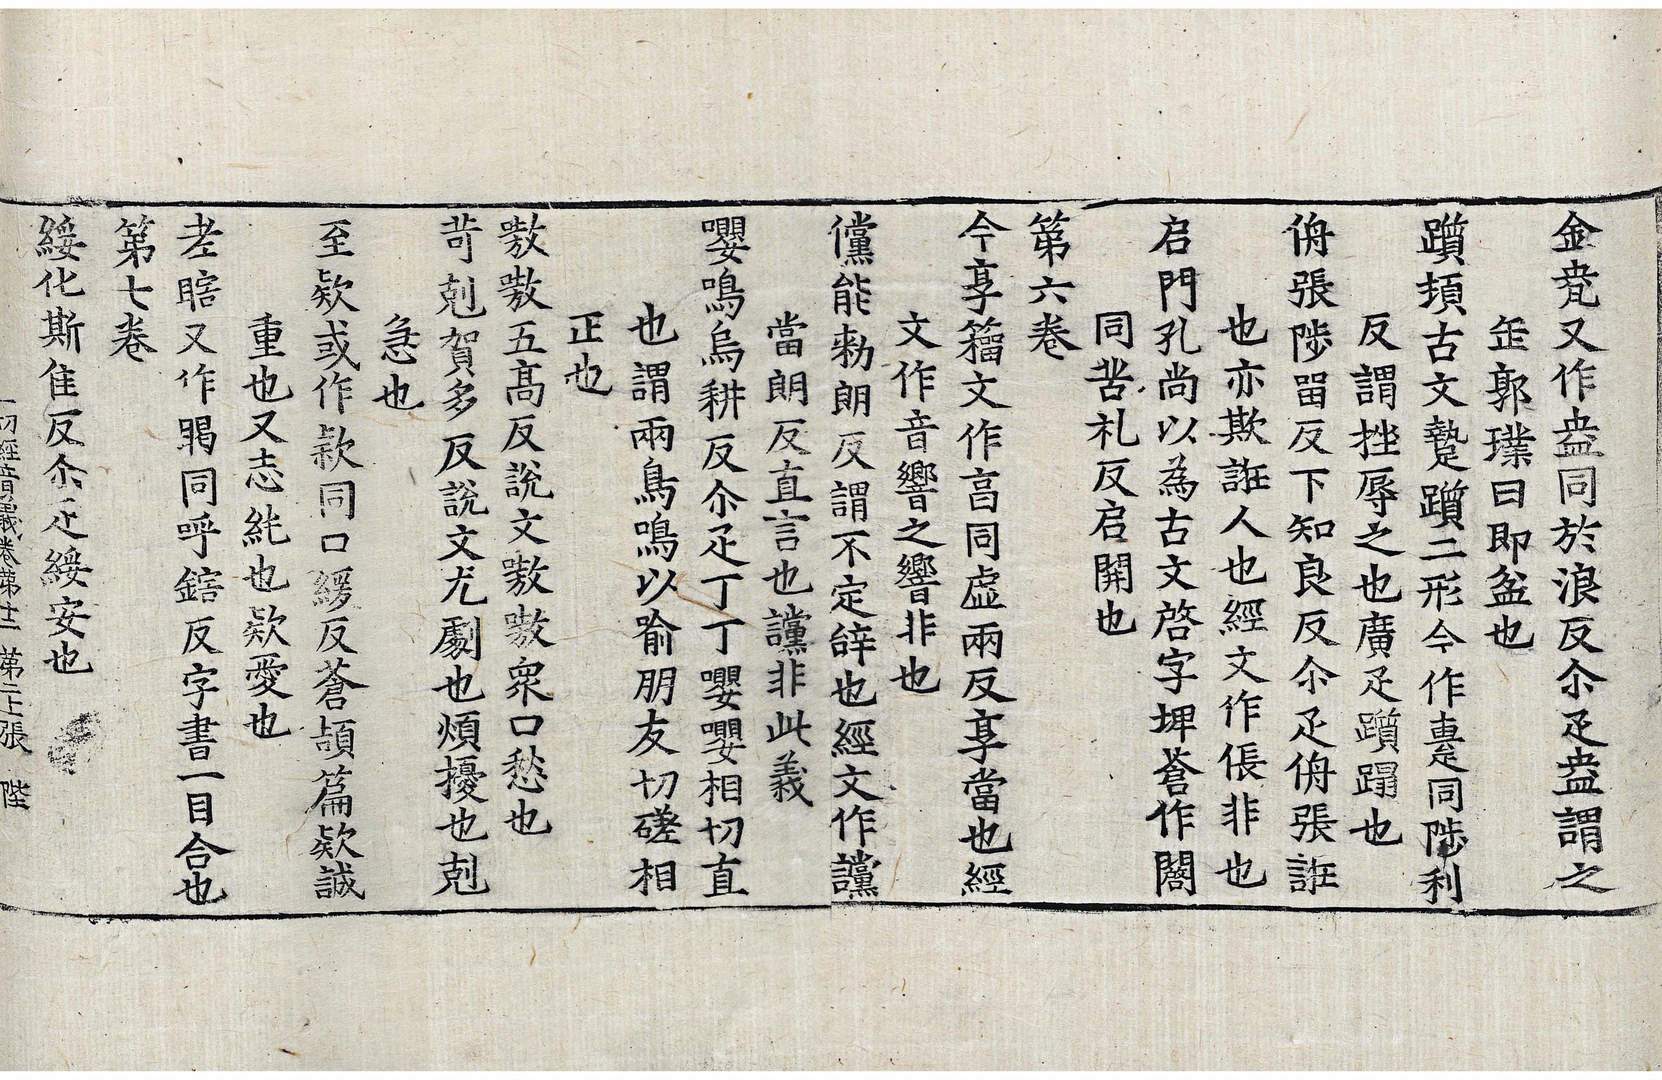 金甕又作盎同於浪反尒疋盎謂之
缶郭璞曰即盆也
躓頓古文躓二形今作疐同陟利
反謂挫辱之也廣疋躓蹋也
侜張陟畱反下知良反尒疋侜張誑
也亦欺誑人也經文作倀非也
启門孔尚以為古文啓字埤蒼作闙
同苦礼反启開也
第六卷
今享籀文作亯同虛兩反享當也經
文作音響之響非也
儻能勑朗反謂不定辝也經文作讜
當朗反直言也讜非此義
嚶鳴烏耕反尒疋丁丁嚶嚶相切直
也謂兩鳥鳴以喻朋友切磋相
正也
嗷嗷五髙反說文嗷嗷衆口愁也
苛剋賀多反說文尤劇也煩擾也剋
急也
至欵或作款同口緩反蒼頡篇欵誠
重也又志純也欵愛也
老瞎又作䀹同呼鎋反字書一目合也
第七卷
綏化斯隹反尒疋綏安也
一切經音義卷第廿二 第二十張 陛